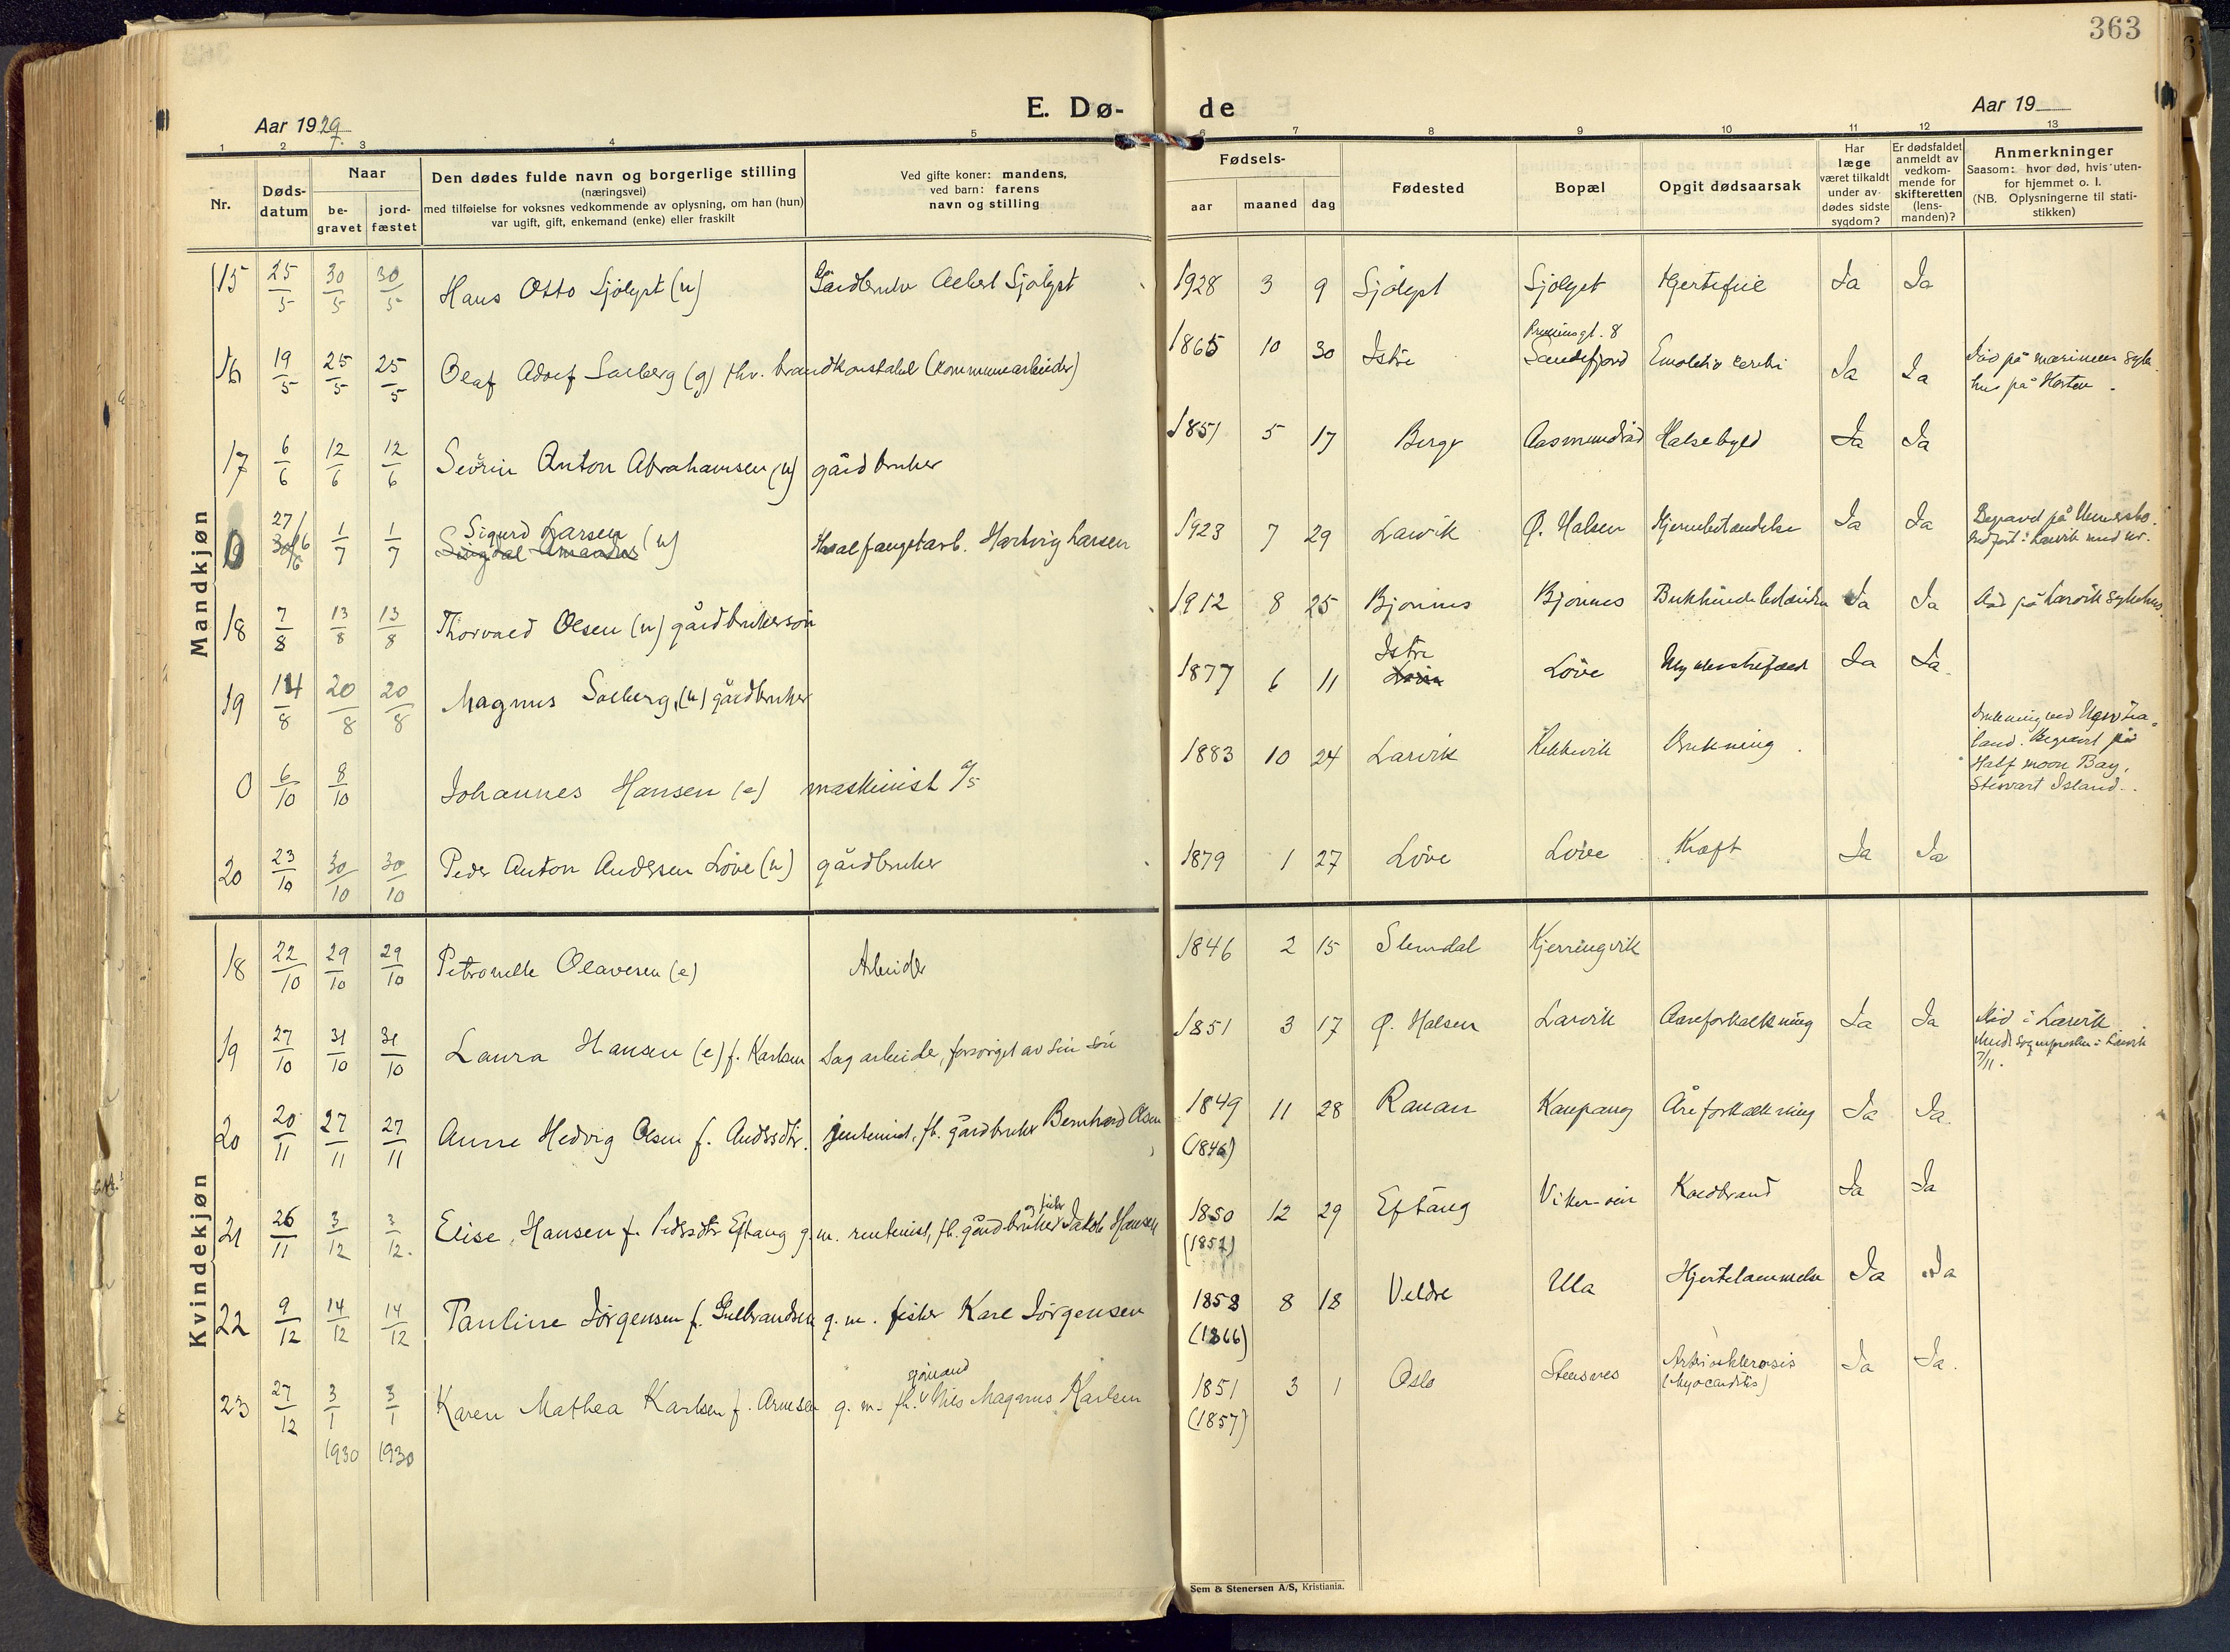 363
E. Dø- de
Aar 1929.
Aar 19
1 2 3 4 5 6 7 8 9 10 11 12 13
Nr.
Døds-
datum
Naar
be-
gravet
jord-
fæstet
Den dødes fulde navn og borgerlige stilling
(næringsvei)
med tilføielse for voksnes vedkommende av oplysning, om han (hun)
var ugift, gift, enkemand (enke) eller fraskilt
Ved gifte koner: mandens,
ved barn: farens
navn og stilling
Fødsels-
aar maaned dag
Fødested
Bopæl
Opgit dødsaarsak
Har
læge
været tilkaldt
under av-
dødes sidste
sygdom?
Er dødsfaldet
anmeldt av
vedkom-
mende for
skifteretten
(lens-
manden)?
Anmerkninger
Saasom: hvor død, hvis uten-
for hjemmet o. l.
(NB. Oplysningerne til stati-
stikken)
Mandkjøn
15 25/5 30/5 30/5 Hans Otto Sjölyst (u) Gårdbruker Sjölyst 1928 3 9 Sjölyst Sjölyst Hjertefeil Ja Ja
16 19/5 25/5 25/5 Olaf Adolf Solberg (g) fhv. brandkonstabel (kommunearbeider) 1865 10 30 Istre
Sandefjord Ja Ja
på marinens syke-
hus på Horten.
17 6/6 12/6 12/6 Sevrin Anton Abrahamsen (u) gårdbruker 1851 5 17 Berge Aasmundrød Halsebyld Ja Ja
0 27/6 1/7 1/7 Sigurd Larsen (u) Hvalfangstarb. Hartvig Larsen 1923 7 29 Larvik Ø. Halsen Hjernebetændelse Ja Ja
Begravet på
18 7/8 13/8 13/8 Thorvald Olsen (u) gårdbrukersön 1912 8 25 Bjønnes Bjønnes Bukhindebetændelse Ja Ja Död på Larvik sykehus.
19 14/8 20/8 20/8 Magnus Solberg, (u) gårdbruker 1877 6 11 Istre Löve Ja Ja
0 6/10 8/10 Johannes Hansen (e) maskinist 1883 10 24 Larvik Drukning
Drukning ved New Zea-
land. Begravet på
Half moon Bay,
Stewart Island.
20 23/10 30/10 30/10 Peder Anton Anderssen Löve (u) gårdbruker 1879 1 27 Löve Löve Kræft Ja Ja
Kvindekjøn
18 22/10 29/10 29/10 Petronelle Olavesen (e) Arbeider 1846 2 15 Slemdal Kjerringvik
19 27/10 31/10 31/10 Laura Hansen (e) f. Karlsen Sagarbeider, forsörget av sin sön 1851 3 17 Ø. Halsen Larvik Aareforkalkning Ja Ja Död i Larvik
20 20/11 27/11 27/11 Anne Hedvig Olsen f. Andersdtr. fh. gårdbruker Bernhard Olsen 1849 11 28 Rauan Kaupang Åreforkalkning Ja Ja.
(1846)
21 26/11 3/12 3/12. Elise Hansen f. Pedersdtr Eftang g. m. rentenist, fh. gårdbruker og fisker Jakob Hansen 1850 12 29 Eftang Koldbrand Ja Ja
(1852)
22 9/12 14/12 14/12 Pauline Jörgensen f. Gulbrandsen g. m. fisker Karl Jörgensen 1858 8 18 Veldre Ula Hjertelammelse Ja Ja
(1866)
23 27/12 3/1 1930 3/1 1930 Karen Mathea Karlsen f. Arnesen g. m. fh. sjömand Nils Magnus Karlsen 1851 3 1 Oslo Stensnes Arteriosklerosis
(Myocarditis) Ja Ja.
(1857)
Sem & Stenersen A/S, Kristiania.